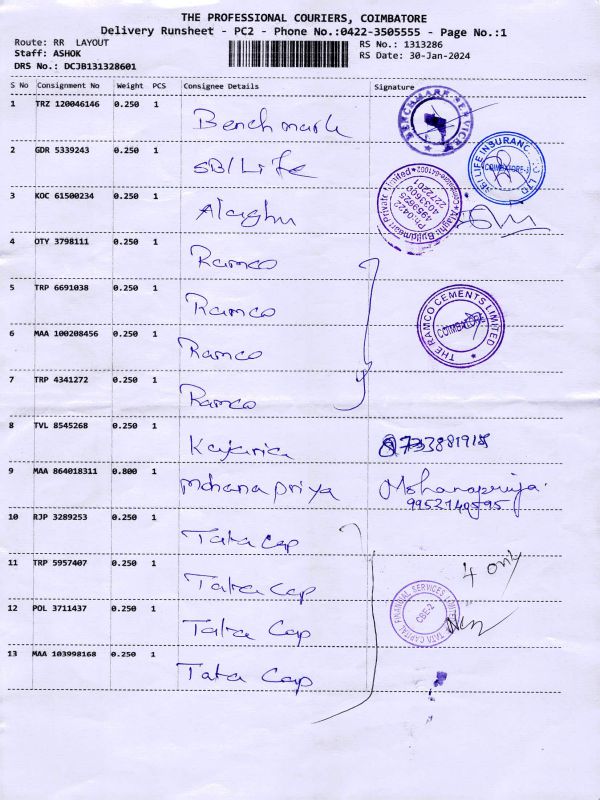 THE PROFESSIONAL COURIERS, COIMBATORE
Delivery Runsheet - PC2 - Phone No.:0422-3505555 - Page No.:1
Route: RR LAYOUT
RS No.: 1313286
Staff: ASHOK
RS Date: 30-Jan-2024
DRS No.: DCJB131328601
S No Consignment No Weight PCS Consignee Details Signature
1 TRZ 120046146 0.250 1 Benchmark
BENCHMARK SERVICES
2 GDR 5339243 0.250 1 SBI Life
SBI LIFE INSURANCE CO LTD
COIMBATORE-1
3 KOC 61500234 0.250 1 Alaghu
Private Limited
Ph:0422
4959925
4033600
2272201
4 OTY 3798111 0.250 1 Ramco
5 TRP 6691038 0.250 1 Ramco
THE RAMCO CEMENTS LIMITED
COIMBATORE
6 MAA 100208456 0.250 1 Ramco
7 TRP 4341272 0.250 1 Ramco
8 TVL 8545268 0.250 1 Kajaria
9 MAA 864018311 0.800 1 Mohanapriya Mohanapriya.
9952740595
10 RJP 3289253 0.250 1 Tata Cap
11 TRP 5957407 0.250 1 Tata Cap 4 only
12 POL 3711437 0.250 1 Tata Cap
TATA CAPITAL FINANCIAL SERVICES LIMITED
CBE-2
13 MAA 103998168 0.250 1 Tata Cap